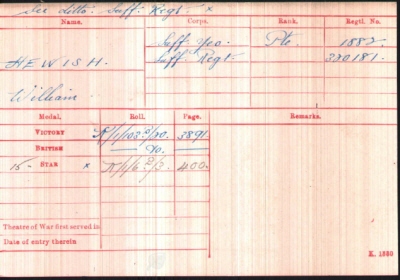 See ditto. Suff: Regt. x
Name. Corps. Rank. Regtl. No.
Suff. Yeo. Pte. 1882.
HEWISH. Suff. Regt. 320181.
William
Medal. Roll. Page. Remarks.
VICTORY K/1/103B/20. 3891.
BRITISH Do.
15- STAR x K/1/6B/3. 400
Theatre of War first served in
Date of entry therein
K. 1380